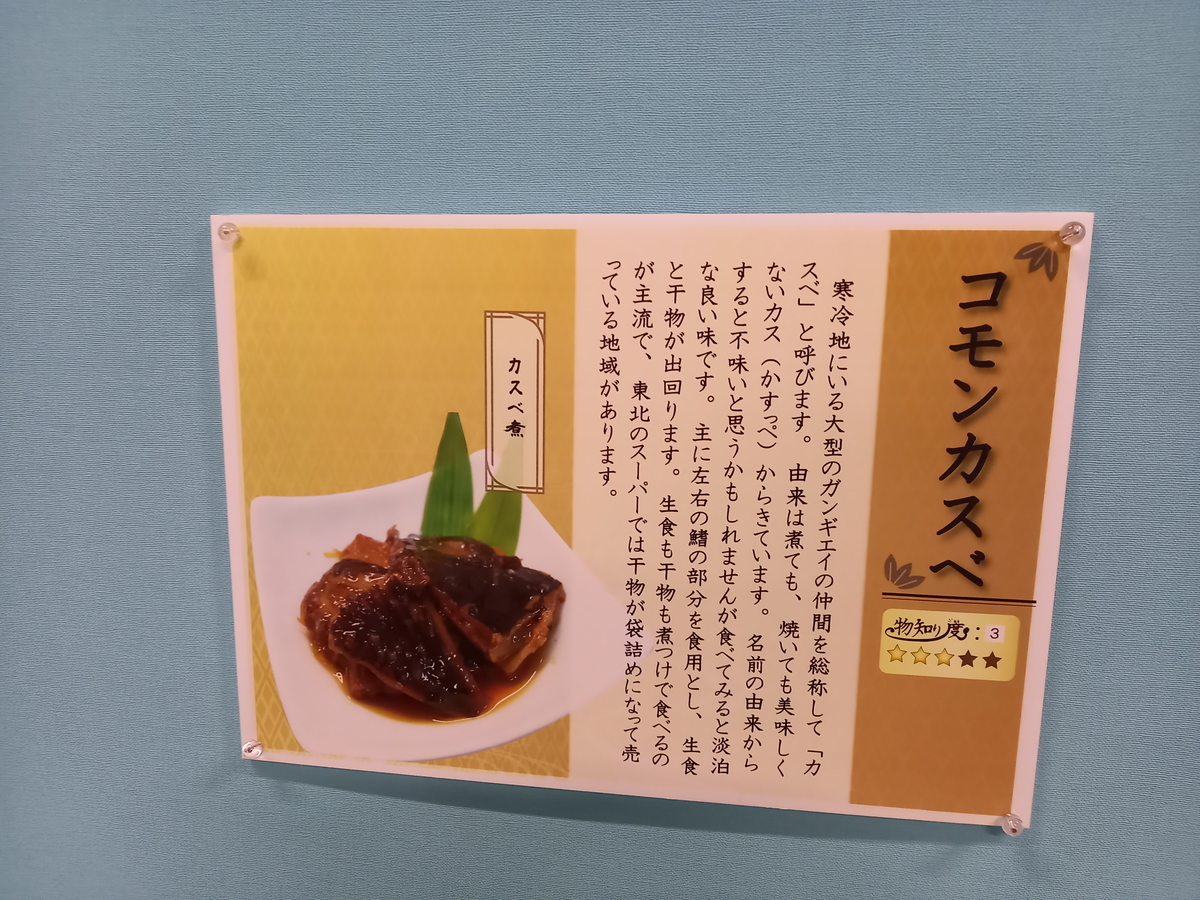 コモンカスベ
物知り度：3
寒冷地にいる大型のガンギエイの仲間を総称して「カ
スベ」と呼びます。由来は煮ても、焼いても美味しく
ないカス（かすっぺ）からきています。名前の由来から
すると不味いと思うかもしれませんが食べてみると淡泊
な良い味です。主に左右の鰭の部分を食用とし、生食
と干物が出回ります。生食も干物も煮つけで食べるの
が主流で、東北のスーパーでは干物が袋詰めになって売
っている地域があります。
カスベ煮